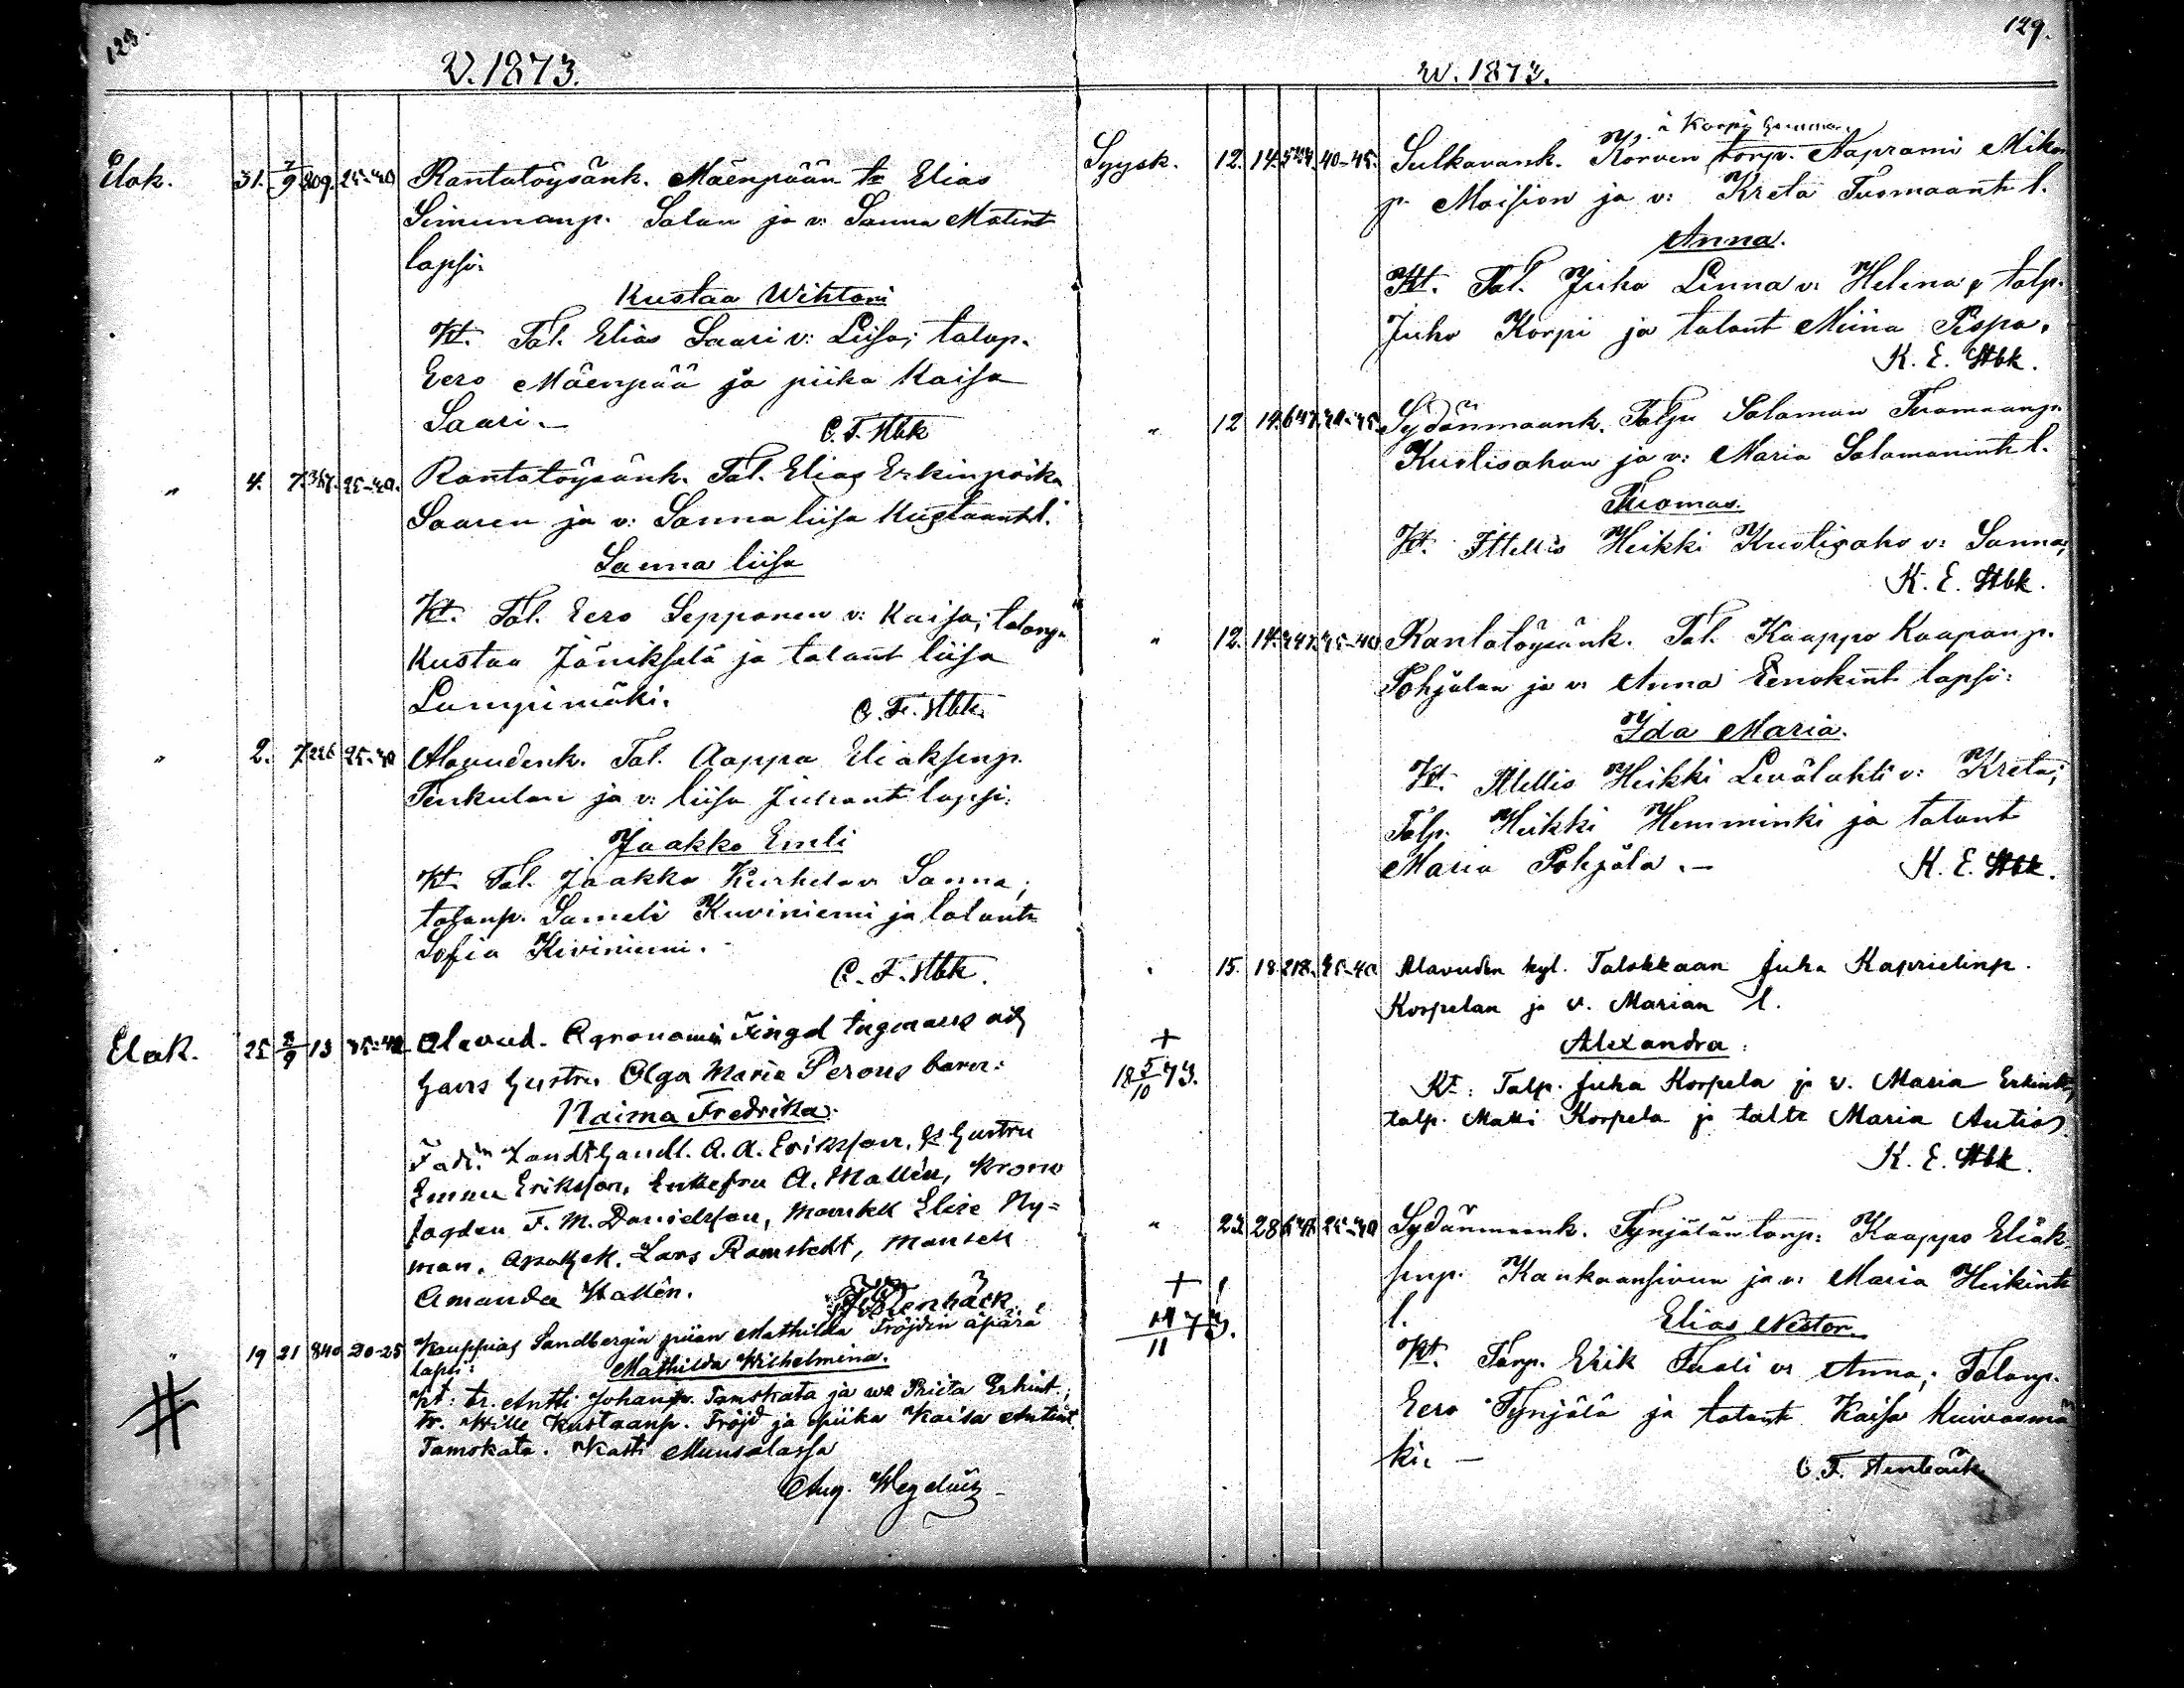 128.
V. 1873.
Elok. 31. 2/9 209. 25-40 Rantatöysänk. Mäenpään tr Elias
Simunanp. Salan ja v: Sanna Matint
lapsi:
Kustaa Wihtori
Kt. Tal. Elias Saari v: Liisa; talop.
Eero Mäenpää ja piika Kaisa
Saari. — C. F. Stbk
" 4. 7. 367. 25-40. Rantatöysänk. Tal. Elias Erkinpoika
Saaren ja v: Sanna liisa Kustaant l.
Sanna liisa
Kt. Tal. Eero Sepponen v: Kaisa; talonp.
Kustaa Jänikselä ja talont liisa
Lampimäki. C. F. Stbk.
" 2. 7. 226 25-40 Alavudenk. Tal. Aappa Eliaksenp.
Tenkulan ja v: liisa Juhant lapsi:
Jaakko Emli
Kt. Tal. Jaakko Kurhela v: Sanna;
talonp. Sameli Kuviniemi ja talont
Sofia Kiviniemi. C. F. Stbk.
Elok. 25 2/9 13 35-40 Alavud. Agronomin Fingal
hans hustru Olga Maria Perons barn:
Naima Fredrika.
Fadr. Landthandl. A. A. Eriksson, hustru
Emma Eriksson, Enkefru A. Hallén, Krono
fogden F. M. Danielsson, Mamsell Elise Ny=
man, Apothek. Lars Ramstedt, Mamsell
Amanda Hallén. Stenbäck.
" 19 21 840 20-25 Kauppias Sandbergin piian Mathilda Fröjdin äpärä
lapsi: Mathilda Wilhelmina.
Kt: tr. Antti Johanp. Tamskata ja wa Priita Erkint.;
tr. Wille Kustaanp. Fröjd ja piika Kaisa Antint
Tamskata. Kasti Munsalassa
Aug. Wegelius
129.
W. 1873.
Syysk. 12. 14. 544. 40-45. Sulkavank. Korven torp. Aaprami Mikon
p. Moision ja v: Kreta Tuomaant l.
Anna.
Kt. Tal. Juho Linna v: Helena; talp.
Juho Korpi ja talont Miina Pispa.
K. E. Stbk.
" 12 14. 647. Sydänmaank. Talp. Salomon Tuomaanp.
Kuolisahan ja v: Maria Salomonint l.
Tuomas.
Kt. Ittellis Heikki Kuolisaho v: Sanna,
K. E. Stbk.
" 12. 14. 35-40 Rantatöysänk. Tal. Kaappo Kaaponp.
Pohjolan ja v: Anna Eenokint lapsi:
Ida Maria.
Kt. Itellis Heikki Levälahti v: Kreta;
Talp. Heikki Hemminki ja talont
Maria Pohjola. — K. E. Stbk.
" 15. 18 218. 35-40 Alavuden kyl. Talokkaan Juha Kaprielinp.
Korpelan ja v. Marian l.
+
18 5/10 73.
Alexandra:
Kt: Talp. Juha Korpela ja v. Maria Erkint,
talp. Matti Korpela ja taltr Maria Autio
K. E. Stbk.
" 23. 28 25-30 Sydänmaank. Tynjälän torp: Kaappo Eliak-
senp. Kankaansivun ja v: Maria Heikint
l. Elias Nestor.
+
11 73.
Kt. Torp. Erik Tuali v: Anna; Talonp.
Eero Tynjälä ja talont Kaisa Kuivasmä
ki. — C. F. Stenbäck